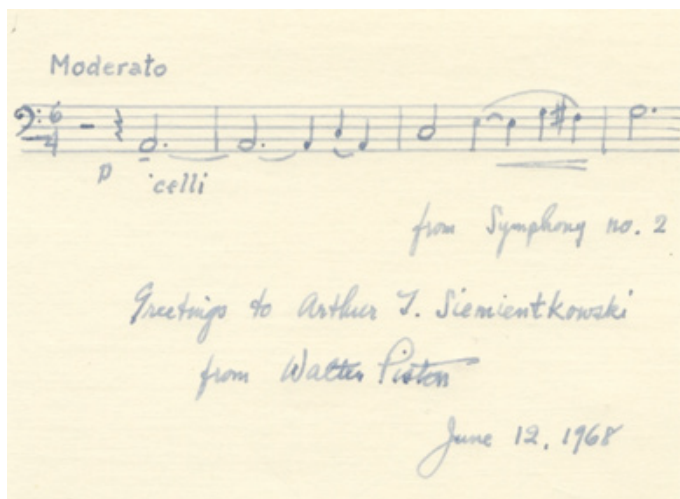 Moderato
6
4
p 'celli
from Symphony no. 2
Greetings to Arthur J. Siemientkowski
from Walter Piston
June 12, 1968